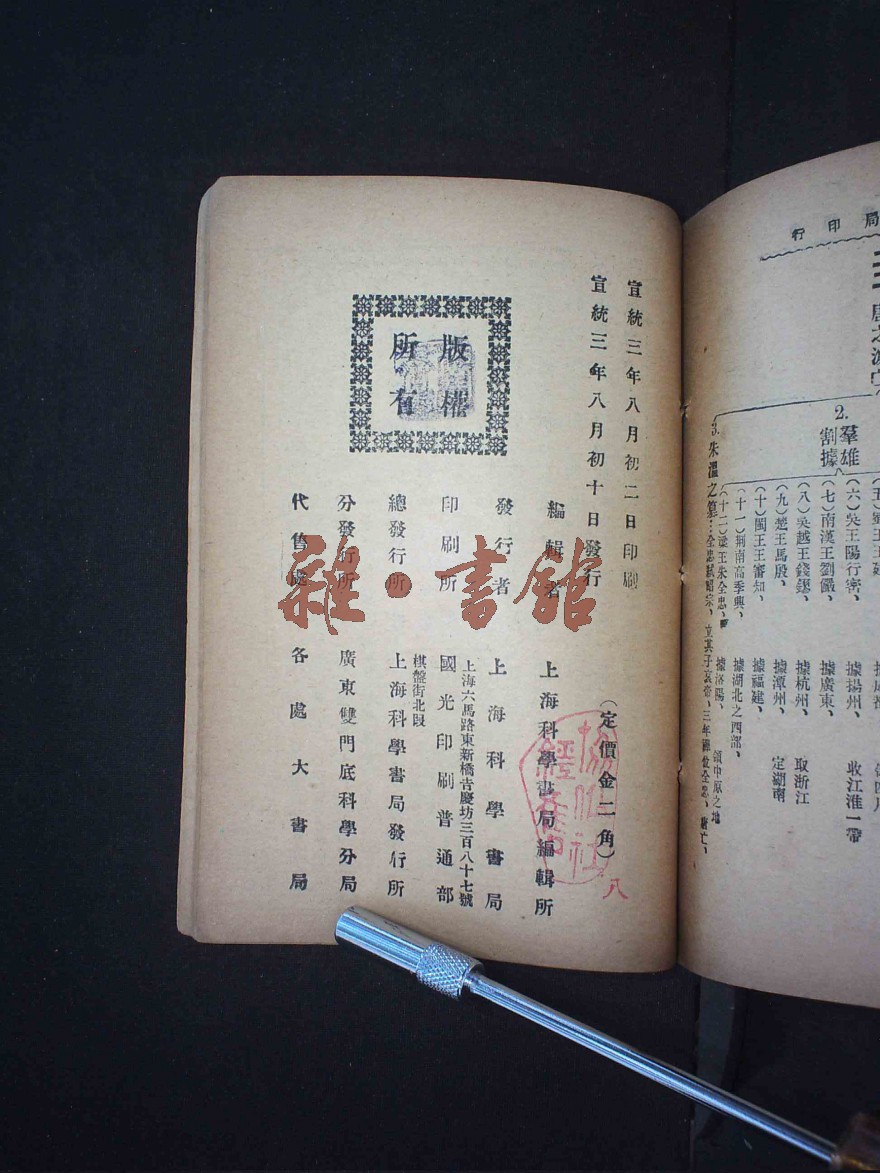 局印行
唐之滅亡
2.羣雄割據
(六)吳王陽行密、據揚州、收江淮一帶
(七)南漢王劉儼、據廣東、
(八)吳越王錢鏐、據杭州、取浙江
(九)楚王馬殷、據潭州、定湖南
(十)閩王王審知、據福建、
(十一)荆南高季興、據湖北之四部、
(十二)梁王朱全忠、據洛陽、領中原之地
3.朱溫之篡…全忠弑昭宗、立其子哀帝、三年
宣統三年八月初二日印刷
宣統三年八月初十日發行
(定價金二角)
版權
所有
編輯者 上海科學書局編輯所
發行者 上海科學書局
上海六馬路東新橋吉慶坊三百八十七號
印刷所 國光印刷普通部
棋盤街北段
總發行所 上海科學書局發行所
分發行所 廣東雙門底科學分局
代售處 各處大書局
八
雜·書館